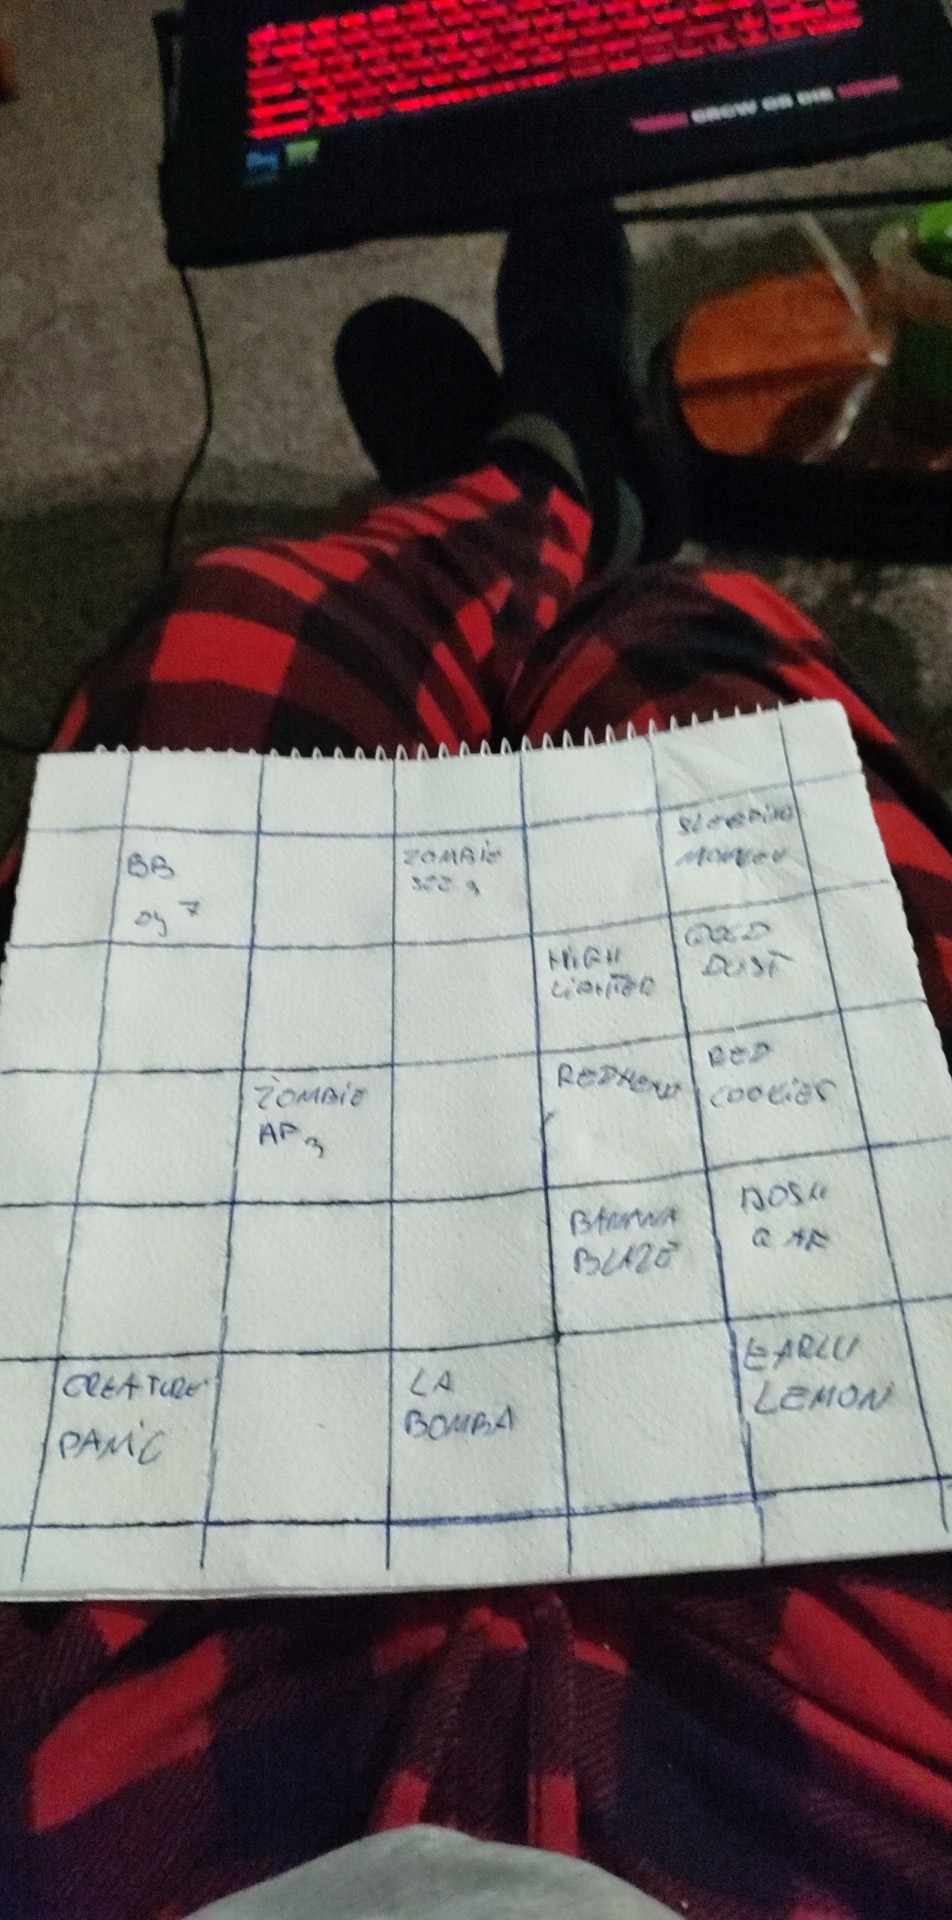 GROW OR DIE
SLEEPING
MONKEY
BB
ZOMBIE
HIGH
LIGHTER
GOLD
DUST
ZOMBIE
AP 3
REDHEAD
RED
COOKIES
BANANA
BLAZE
CREATURE
PANIC
LA
BOMBA
EARLY
LEMON